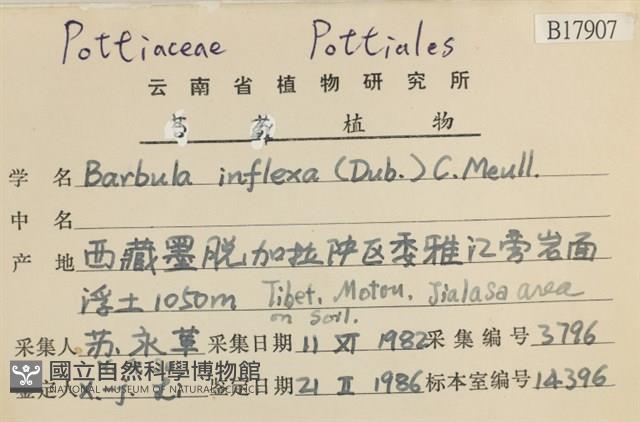 B17907
Pottiaceae Pottiales
云南省植物研究所
苔藓植物
学名 Barbula inflexa (Dub.) C. Meull.
中名
产地 西藏墨脱加拉萨区委雅江旁岩面
浮土1050m Tibet, Motou, Jialasa area
on soil.
采集人 苏永革 采集日期 11 XI 1982 采集编号 3796
鉴定人 鉴定日期 21 II 1986 标本室编号 14396
國立自然科學博物館
NATIONAL MUSEUM OF NATURAL SCIENCE